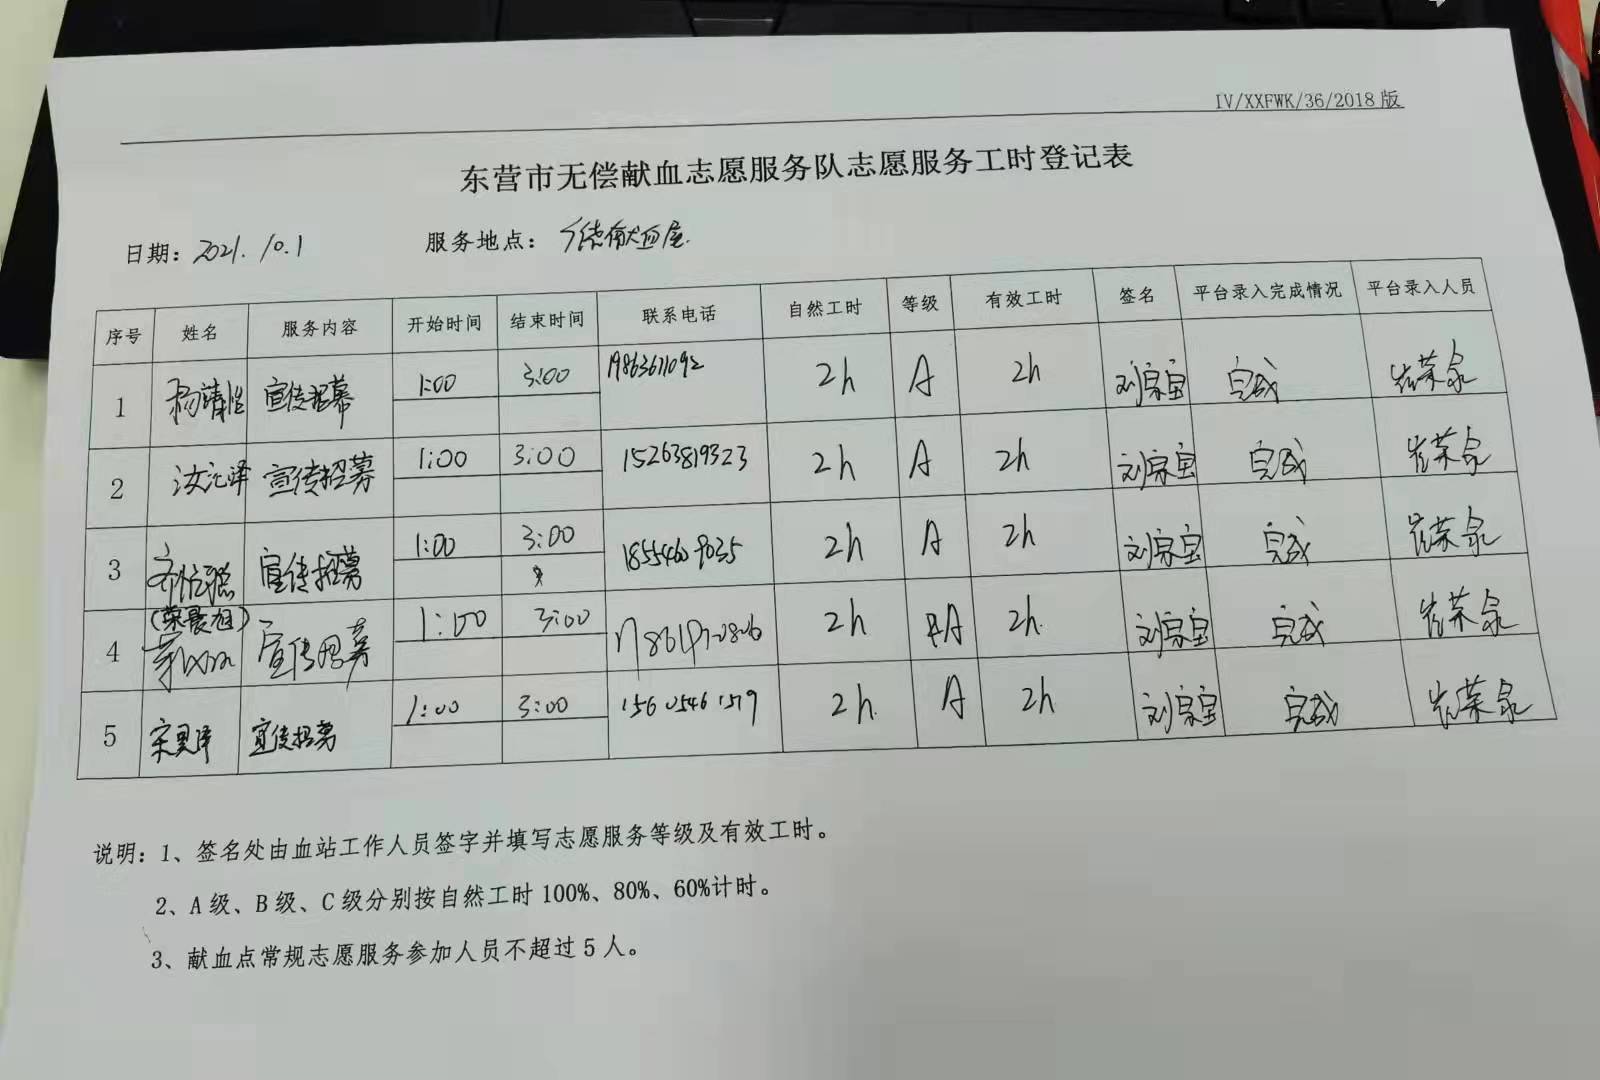 IV/XXFWK/36/2018版
东营市无偿献血志愿服务队志愿服务工时登记表
日期：2021.10.1 服务地点：献血屋.
序号 姓名 服务内容 开始时间 结束时间 联系电话 自然工时 等级 有效工时 签名 平台录入完成情况 平台录入人员
1 杨靖怡 宣传招募 1:00 3:00 19863611092 2h A 2h 刘宗宝 完成 崔荣泉
2 汝沅泽 宣传招募 1:00 3:00 15263819323 2h A 2h 刘宗宝 完成 崔荣泉
3 宣传招募 1:00 3:00 18554609035 2h A 2h 刘宗宝 完成 崔荣泉
(荣晨旭)
4 宣传招募 1:00 3:00 2h A 2h. 刘宗宝 完成 崔荣泉
5 宋昊泽 宣传招募 1:00 3:00 15605461579 2h. A 2h 刘宗宝 完成 崔荣泉
说明：1、签名处由血站工作人员签字并填写志愿服务等级及有效工时。
2、A级、B级、C级分别按自然工时100%、80%、60%计时。
3、献血点常规志愿服务参加人员不超过5人。